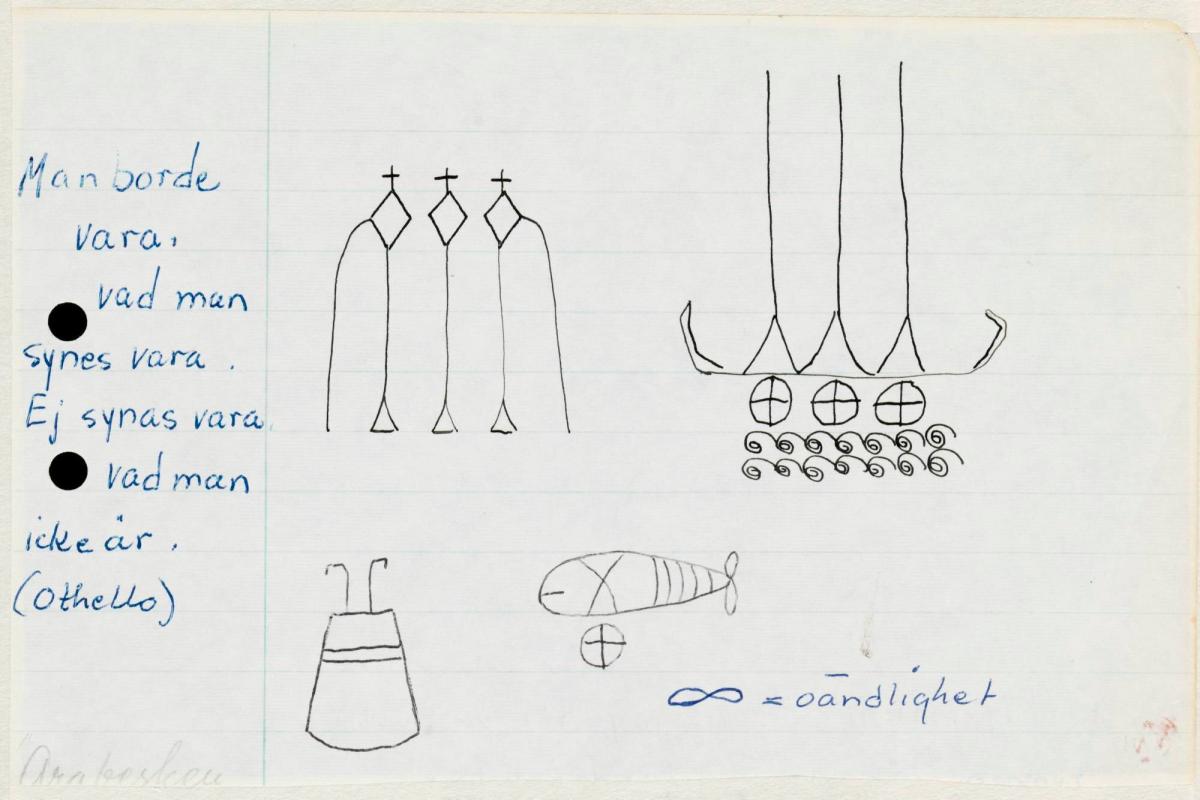 Man borde
vara,
vad man
synes vara.
Ej synas vara
vad man
icke är.
(Othello)
∞ = oändlighet
Arabesken